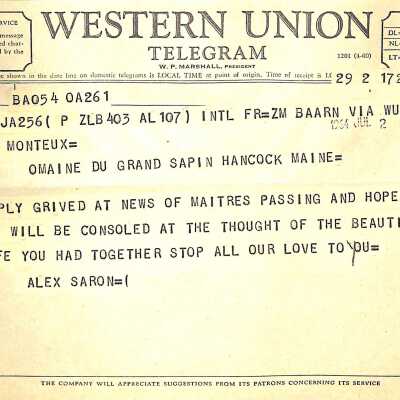 SERVICE
WESTERN UNION
TELEGRAM
W. P. MARSHALL, PRESIDENT
1201 (4-60)
DL=
NL=
LT=
message
ed char-
d by the
e shown in the date line on domestic telegrams is LOCAL TIME at point of origin. Time of receipt is LO
29 2 172
BA054 OA261
JA256( P ZLB403 AL107) INTL FR=ZM BAARN VIA WU
1964 JUL 2
MONTEUX=
OMAINE DU GRAND SAPIN HANCOCK MAINE=
PLY GRIVED AT NEWS OF MAITRES PASSING AND HOPE
WILL BE CONSOLED AT THE THOUGHT OF THE BEAUTI
FE YOU HAD TOGETHER STOP ALL OUR LOVE TO YOU=
ALEX SARON=(
THE COMPANY WILL APPRECIATE SUGGESTIONS FROM ITS PATRONS CONCERNING ITS SERVICE